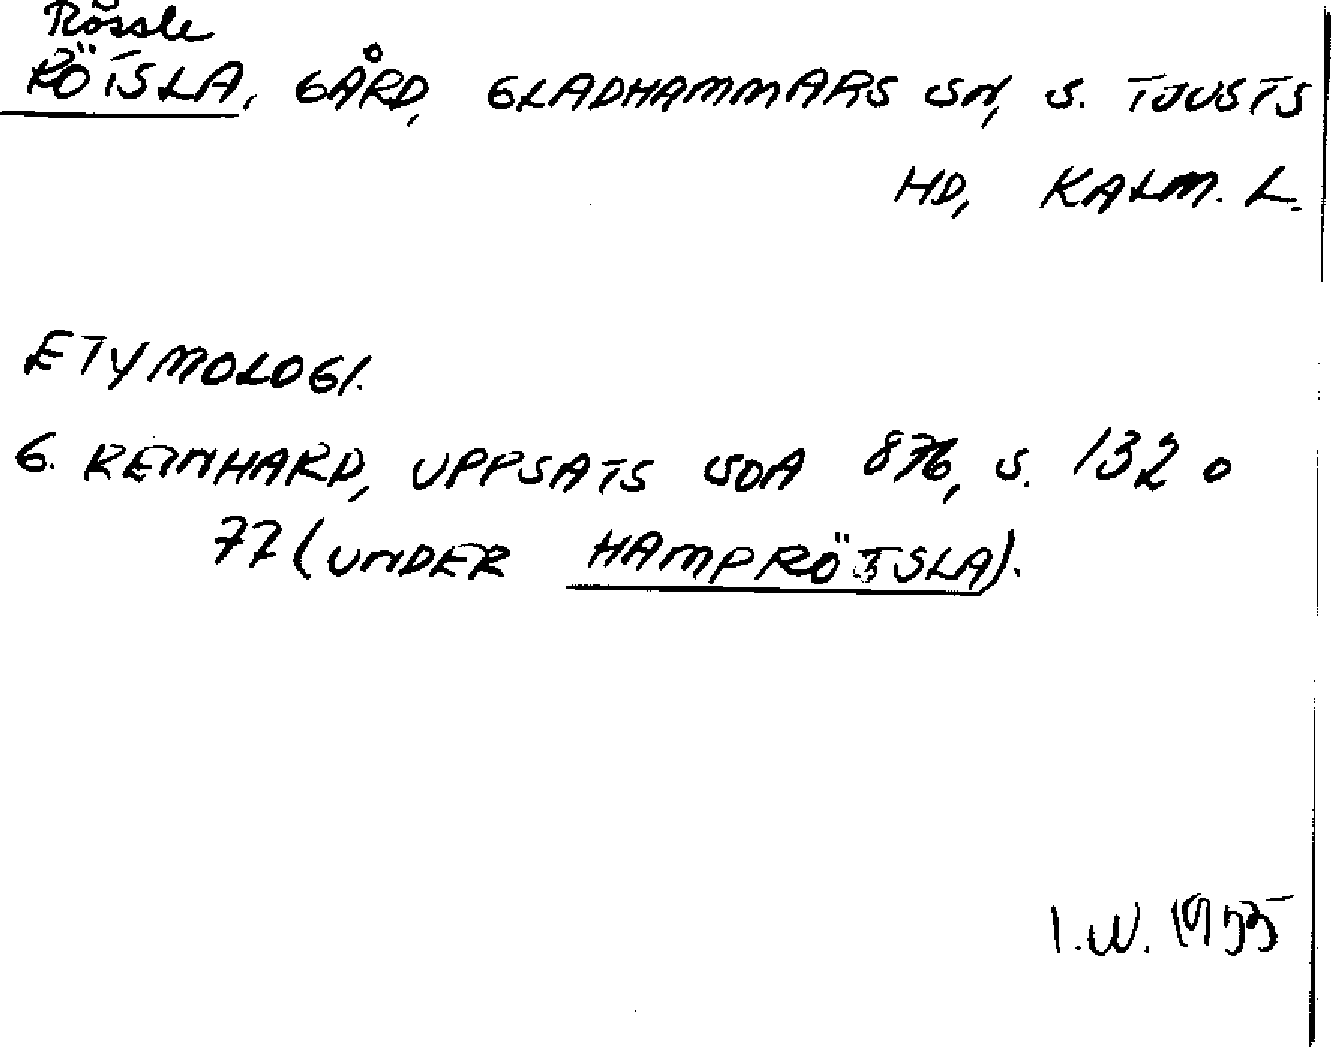 Rössle
RÖTSLA, GÅRD, GLADHAMMARS SN, S. TJUSTS
HD, KALM. L.
ETYMOLOGI.
G. REINHARD, UPPSATS SOA 876, S. 132 o
77 (UNDER HAMPRÖTSLA).
I.W. 1955